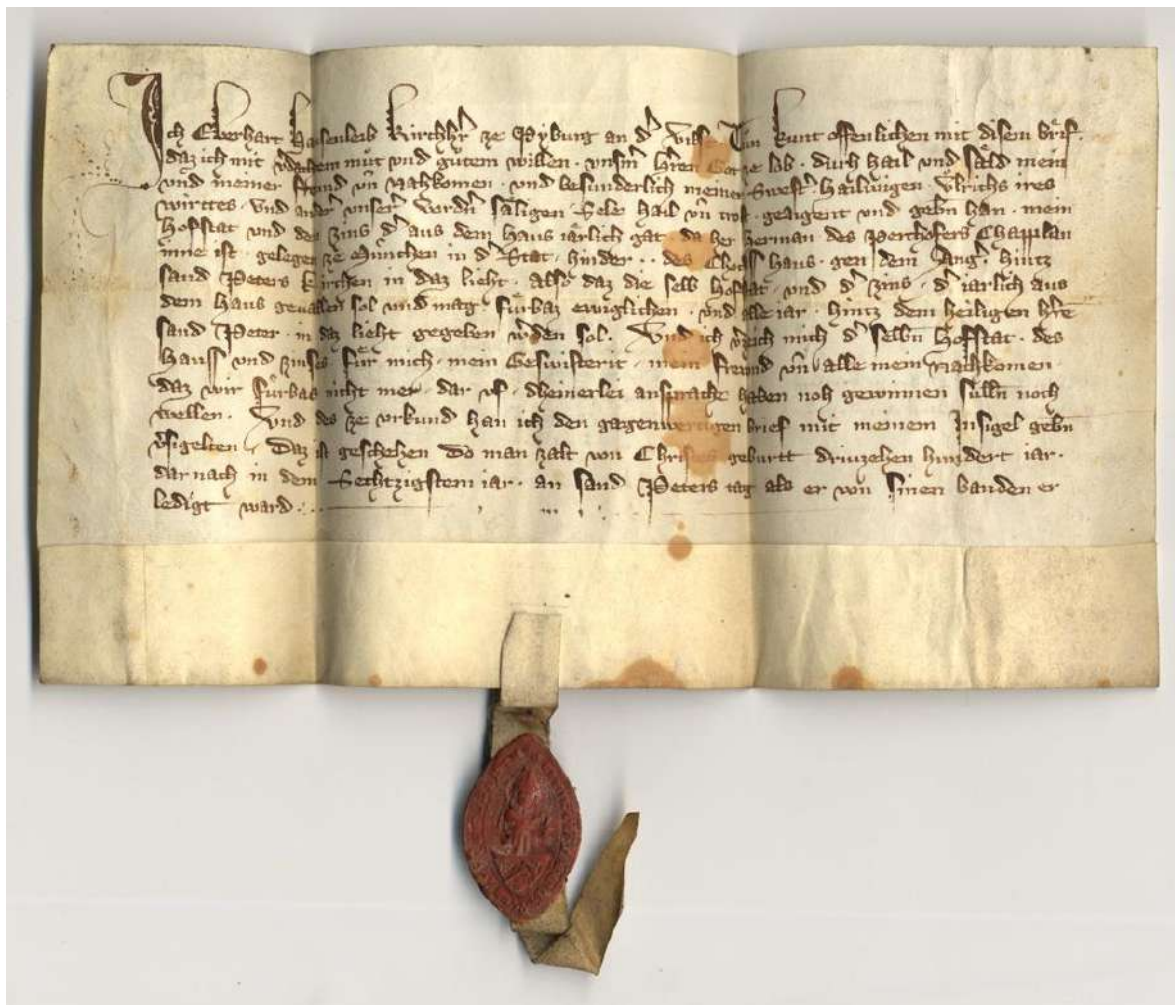 Ich Eberhart Hasenlerb kirchh̄r ze Pyburg an d̄ vilse Tůn kunt offenlichen mit disem brief ·
daz ich mit v̄dahtem můt vnd gůtem willen · vnsm̄ h̄ren Got ze lob · durh hail vnd såld mein
vnd meiner frẘnd vn̄ nahkomen · vnd besunderlich meiner Swest̄ · Hailwigen · v̊lrichs ires
wirttes · vnd ander̄ vnser̄ vordn̄ såligen Sele hail vn̄ trost · geaigent vnd gebn̄ han · mein
Hofstat vnd den zins d̄ aus dem haus iårlich gat · da her Herman des Perchofers Chapplan
inne ist · gelegen ze Můnchen in d̄ Stat · hinder · · des haus · gen dem Anḡ · hintz
sand Peters kirchen in daz lieht · also daz die selb hofstat · vnd d̄ zins · d̄ iårlich aus
dem haus geuallen sol vnd mag · fůrbaz ewiglichen · vnd alle iar · hintz dem heiligen h̄re
sand Peter · in daz lieht gegeben w̄den sol · vnd ich v̄zeich mich d̄ selbn̄ hofstat · des
hauss vnd zinses · fůr mich · mein Geswisterit · mein frẘnd vn̄ alle mein nachkomen ·
daz wir fůrbas nicht mer · dar vf · dheinerlei ansprache haben noh gewinnen sůlln̄ noch
wellen · vnd des ze vrkund han ich den gagenwertigen brief mit meinem Insigel gebn̄
v̄sigelten · Daz ist geschehen Do man zalt von Christes geburtt driuzehen hundert iar ·
dar nach in dem Sechtzigstem iar · an sand Peters tag als er von sinen banden er
ledigt ward ·